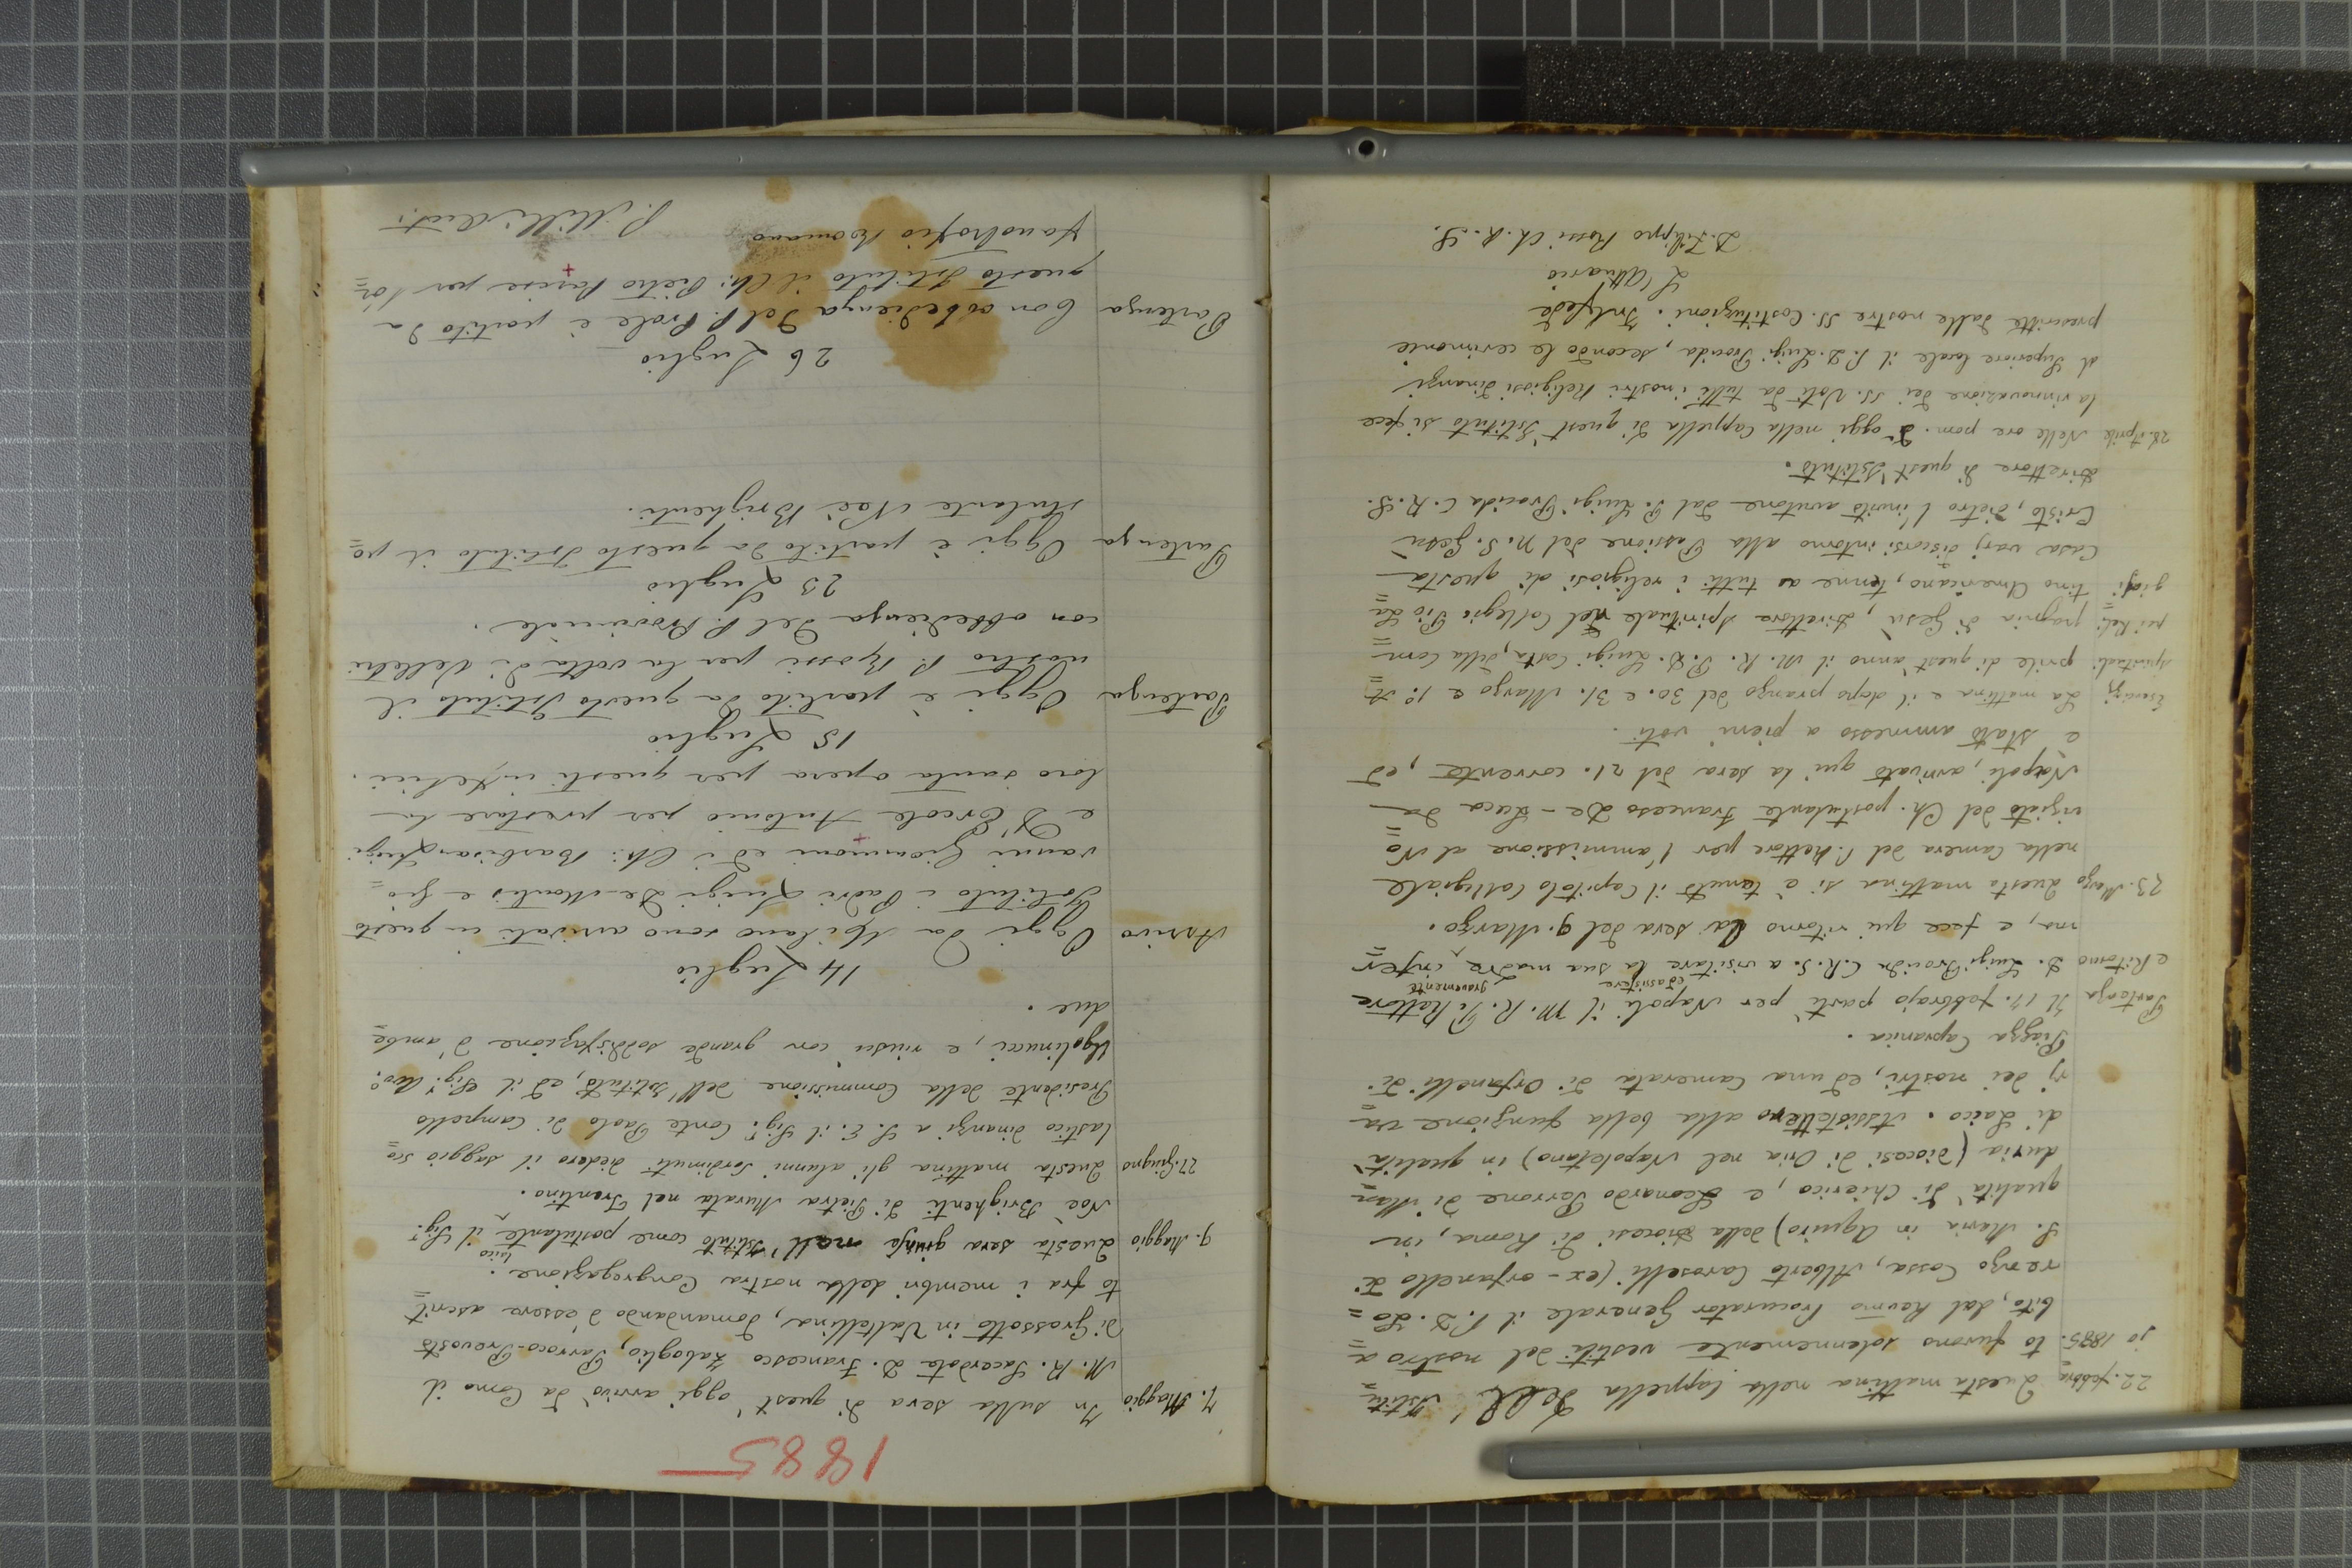 22. febbra= Questa mattina nella Cappella dell' Istitu=
jo 1885. to furono solennemente vestiti del nostro a=
bito, dal Revmo Procurator Generale il P. D. Lo=
renzo Cossa, Alberto Caroselli (ex-orfanello di
S. Maria in Aquiro) della Diocesi di Roma, in
qualità di Chierico, e Leonardo Perrone di Man=
duria (Diocesi di Oria nel Napoletano) in qualità
di Laico. Assistettero alla bella funzione va=
rj dei nostri, ed una Camerata di Orfanelli di
Piazza Capranica.
Partenza Il 17. febbrajo partì per Napoli il M. R. P. Rettore
ed assistere gravemente
e Ritorno D. Luigi Procida C. R. S. a visitare la sua madre infer=
ma, e fece qui ritorno la sera del 9. Marzo.
23. Marzo Questa mattina si è tenuto il Capitolo Collegiale
nella Camera del P. Rettore per l'ammissione al No=
viziato del Ch. postulante Francesco De-Luca da
Napoli, arrivato qui la sera del 21. corrente, ed
è stato ammesso a pieni voti.
Esercizj La mattina e il dopo pranzo del 30. e 31. Marzo e 1.° A=
spirituali prile di quest'anno il M. R. P. D. Luigi Costa, della Com=
pei Reli= pagnia di Gesù, Direttore Spirituale del Collegio Pio La=
giosi tino Americano, tenne a tutti i religiosi di questa
Casa varj discorsi intorno alla Passione del N. S. Gesù
Cristo, dietro l'invito avutone dal P. Luigi Procida C. R. S.
Direttore di quest'Istituto.
28. Aprile Nelle ore pom. d'oggi nella Cappella di quest'Istituto si fece
la rinnovazione dei SS. Voti da tutti i nostri Religiosi dinanzi
al Superiore locale il P. D. Luigi Procida, secondo le cerimonie
prescritte dalle nostre SS. Costituzioni. In fede
L'Attuario
D. Filippo Rossi Ch. R. S.
1885
7. Maggio In sulla sera di quest'oggi arrivò da Como il
M. R. Sacerdote D. Francesco Zaboglio, Parroco-Prevosto
di Grossotto in Valtellina, domandando d'essere ascrit=
to fra i membri della nostra Congregazione.
laico
9. Maggio Questa sera giunse nell'Istituto come postulante il Sig.r
Noè Brighenti di Pietra Murata nel Trentino.
27. Giugno Questa mattina gli alunni Sordimuti diedero il saggio sco=
lastico dinanzi a S. E. il Sig.r Conte Paolo di Campello
Presidente della Commissione dell'Istituto, ed il Sig.r Avv.o
Ugolinucci, e riuscì con grande soddisfazione d'ambe
due.
14 Luglio
Arrivo Oggi da Milano sono arrivati in questo
Istituto i Padri Luigi De-Montis e Gio=
vanni Giammoni ed i Ch: Barbisan Luigi
e D'Ercole Antonio per prestare la
loro santa opera per questi infelici.
15 Luglio
Partenza Oggi è partito da questo Istituto il
nostro P. Rossi per la volta di Velletri
con obbedienza del P. Provinciale.
23 Luglio
Partenza Oggi è partito da questo Istituto il po=
stulante Noè Brighenti.
26 Luglio
Partenza Con obbedienza del P. Prole è partito da
questo Istituto il Ch: Pietro Parise per l'or=
fanotrofio Romano